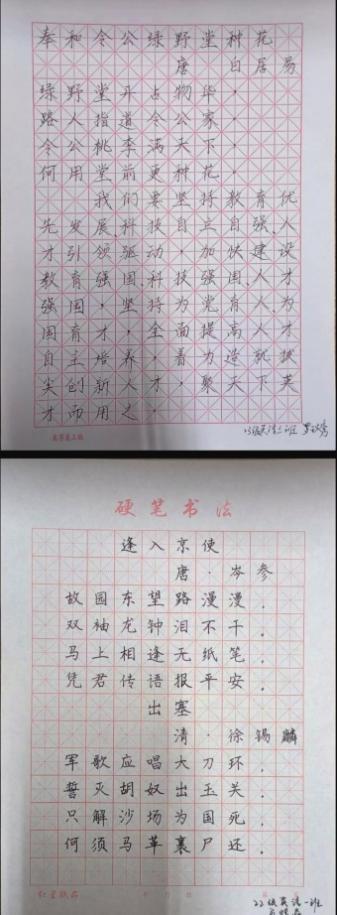 奉和令公绿野堂种花
唐 白居易
绿野堂开占物华，
路人指道令公家，
令公桃李满天下，
何用堂前更种花，
我们要坚持教育优
先发展科技自立自强、人
才引领驱动，加快建设
教育强国、科技强国、人才
强国，坚持为党育人、为
国育才，全面提高人才
自主培养，着力造就拔
尖创新人才，聚天下英
才而用之。
硬笔书法
逢入京使
唐·岑参
故园东望路漫漫，
双袖龙钟泪不干。
马上相逢无纸笔，
凭君传语报平安。
出塞
清·徐锡麟
军歌应唱大刀环，
誓灭胡奴出玉关。
只解沙场为国死，
何须马革裹尸还。
22级英语一班